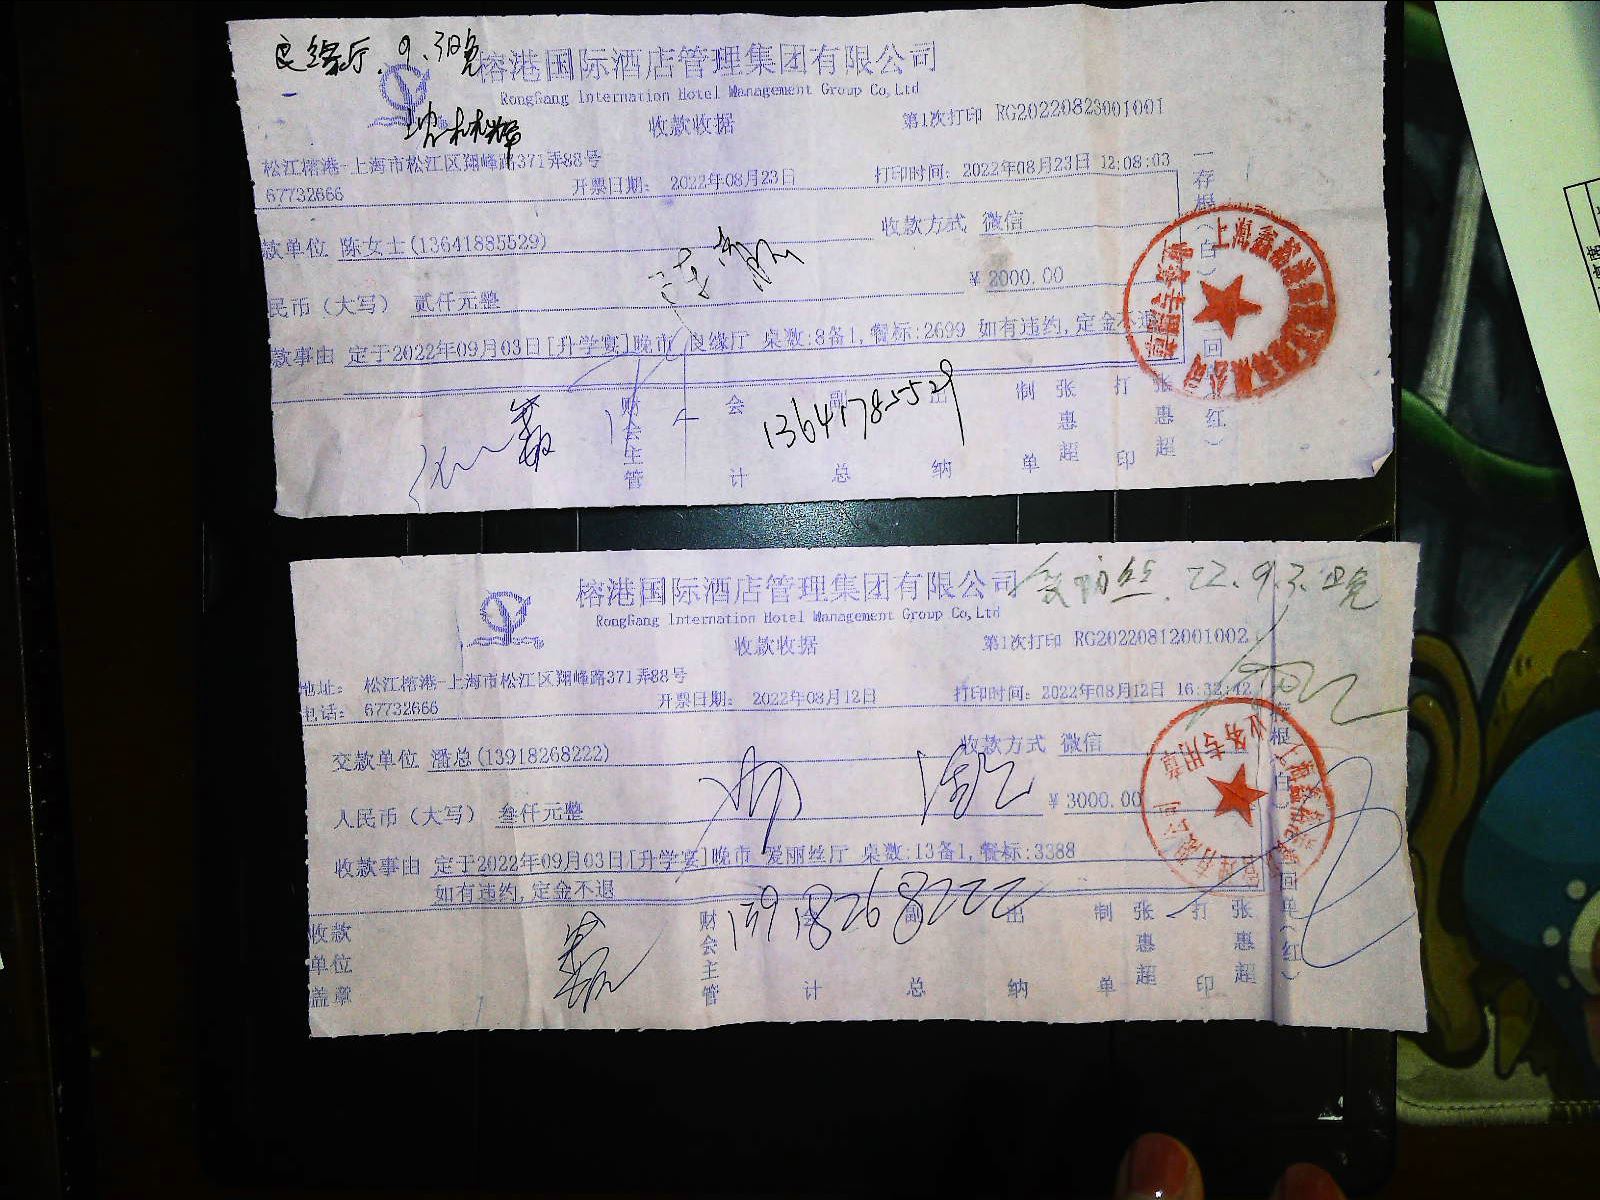 良缘厅. 9.3日晚
榕港国际酒店管理集团有限公司
RongGang Internation Hotel Management Group Co,Ltd
收款收据
第1次打印 RG20220823001001
松江榕港-上海市松江区翔峰路371弄88号
67732666
开票日期: 2022年08月23日
打印时间: 2022年08月23日 12:08:03
款单位 陈女士(13641885529)
收款方式 微信
民币（大写） 贰仟元整
¥ 2000.00
款事由 定于2022年09月03日[升学宴]晚市 良缘厅 桌数:8备1,餐标:2699 如有违约,定金不退
13641785529
财会主管 会计 副总 出纳 制单 张惠超 打印 张惠超
榕港国际酒店管理集团有限公司
爱丽丝. 22.9.3.晚
RongGang Internation Hotel Management Group Co,Ltd
收款收据
第1次打印 RG20220812001002
地址: 松江榕港-上海市松江区翔峰路371弄88号
电话: 67732666
开票日期: 2022年08月12日
打印时间: 2022年08月12日 16:32:42
交款单位 潘总(13918268222)
收款方式 微信
人民币（大写） 叁仟元整
¥ 3000.00
收款事由 定于2022年09月03日[升学宴]晚市 爱丽丝厅 桌数:13备1,餐标:3388
如有违约,定金不退
13918268222
收款单位盖章 财会主管 会计 副总 出纳 制单 张惠超 打印 张惠超